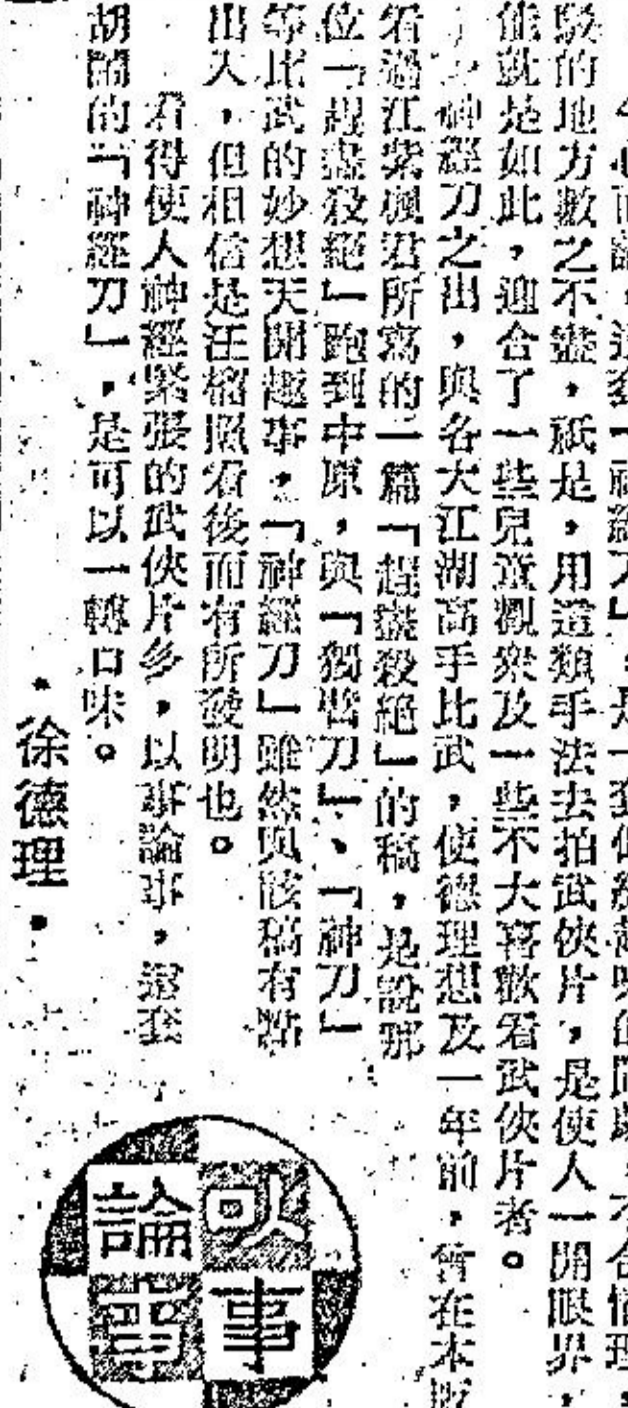 平心而論，這套「神經刀」，是一套
的地方數之不盡，祇是，用這類手法去拍武俠片，是使人一開眼界，
能就是如此，迎合了一些兒童觀衆及一些不大喜歡看武俠片者。
神經刀之出，與各大江湖高手比武，使德理想及一年前，曾在本版
看過江紫楓君所寫的一篇「趕盡殺絕」的稿，是說那
位「趕盡殺絕」跑到中原，與「獨臂刀」、「神刀」
等比武的妙想天開趣事，「神經刀」雖然與該稿有點
出入，但相信是汪榴照看後而有所發明也。
看得使人神經緊張的武俠片多，以事論事，這套
胡鬧的「神經刀」，是可以一轉口味。
•徐德理•
以事
論事